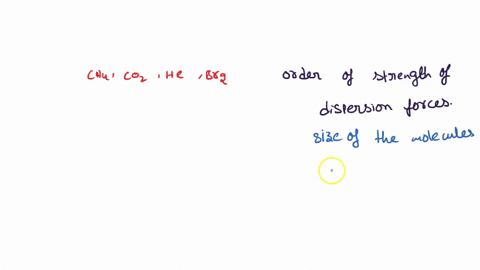 CH4, CO2, He, Br2 order of strength of
dispersion forces.
size of the molecules